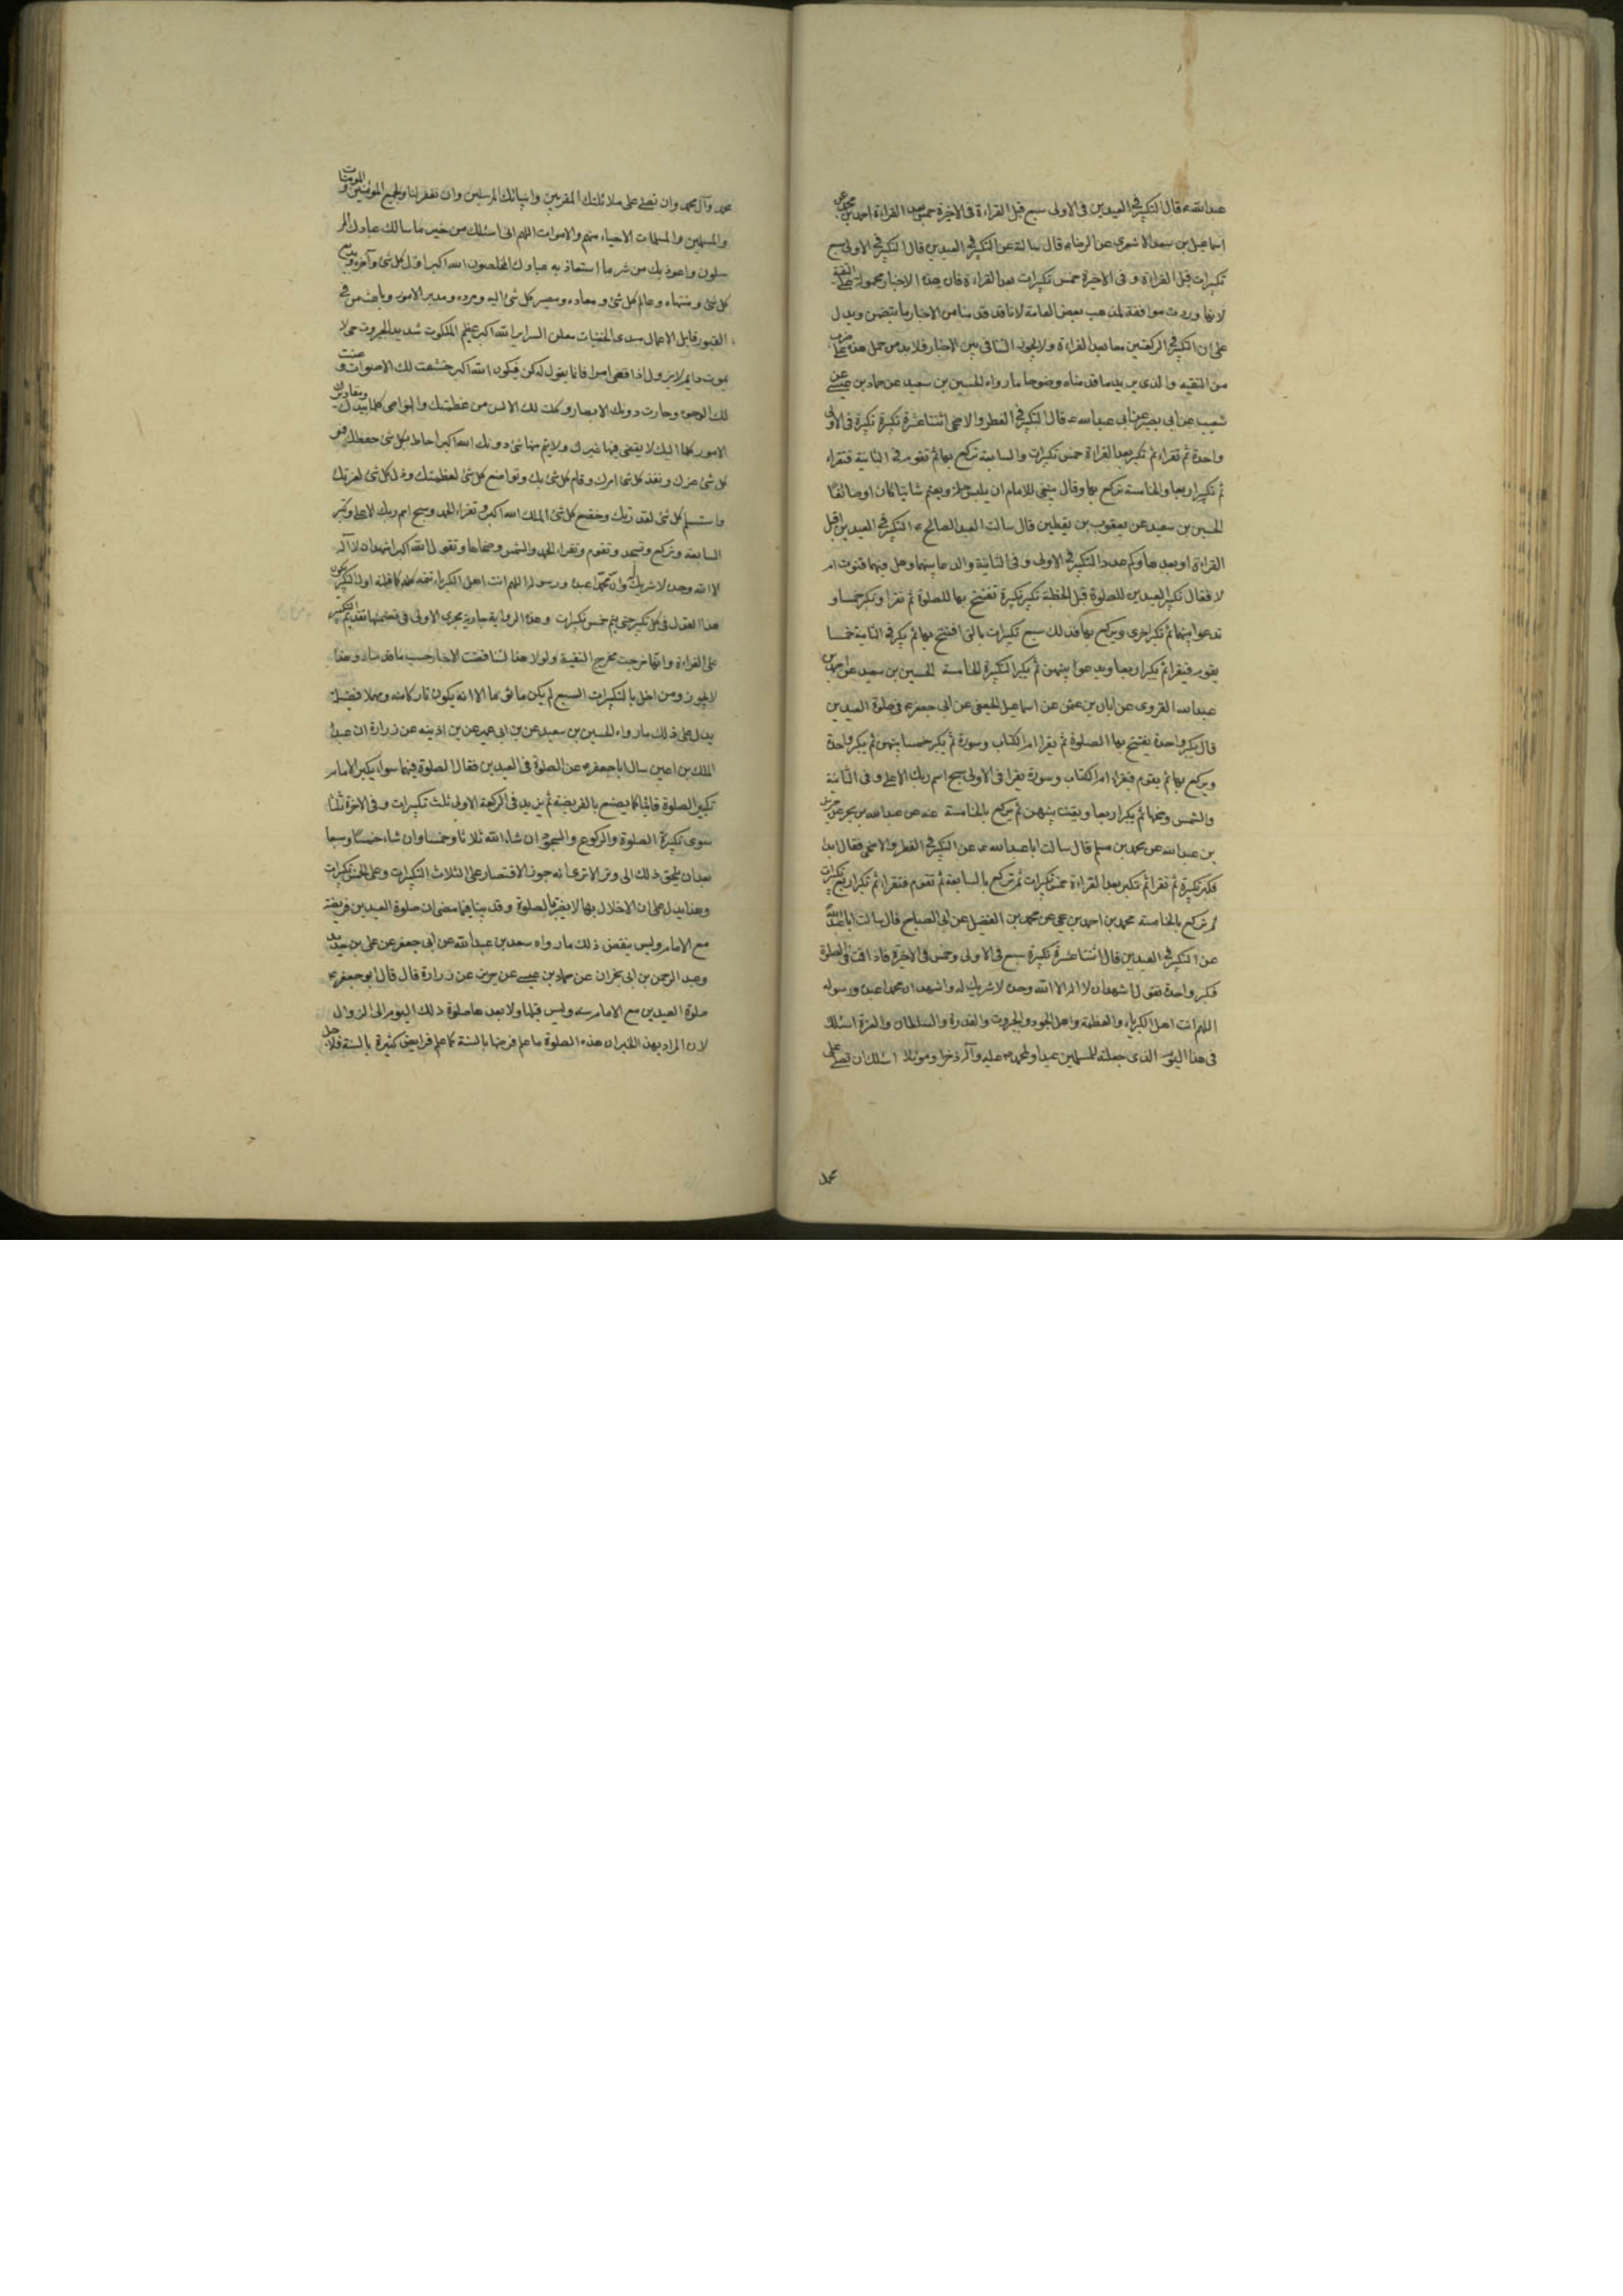 عبدالله ع قال التكبير في العيدين في الاولى سبع قبل القراءة وفي الاخيرة خمس بعد القراءة احمد بن محمد عن
اسماعيل بن سعد الاشعري عن الرضا ع قال سالته عن التكبير في العيدين قال التكبير في الاولى سبع
تكبيرات قبل القراءة و في الاخيرة خمس تكبيرات بعد القراءة فان هذه الاخبار محمولة على التقية
لانها وردت موافقة لمذهب بعض العامة لانا قد قدمنا من الاخبار ما يتضمن ويدل
على ان التكبير في الركعتين معا بعد القراءة ولا يجوز التنافي بين الاخبار فلا بد من حمل هذه على ضرب
من التقية والذي يزيد ما قدمناه وضوحا ما رواه الحسين بن سعيد عن حماد بن عيسى عن
شعيب عن ابي بصير عن ابي عبدالله ع قال التكبير في الفطر والاضحى اثنتا عشرة تكبيرة تكبيرة في الاولى
واحدة ثم تقراء ثم تكبر بعد القراءة خمس تكبيرات والسابعة تركع بها ثم تقوم في الثانية فتقراء
ثم تكبر اربعا والخامسة تركع بها وقال ينبغي للامام ان يلبس حلة ويعتم شاتيا كان او صائفا
الحسين بن سعيد عن يعقوب بن يقطين قال سالت العبد الصالح ع التكبير في العيدين اقبل
القراءة او بعدها وكم عدد التكبير في الاولى و في الثانية والدعا بينهما وهل فيهما قنوت ام
لا فقال تكبير العيدين للصلوة قبل الخطبة تكبر تكبيرة تفتتح بها للصلوة ثم تقرا وتكبر خمسا و
تدعوا بينها ثم تكبر اخرى ويركع بها فذلك سبع تكبيرات بالتي افتتح بها ثم يكبر في الثانية خمسا
يقوم فيقرا ثم يكبر اربعا ويدعوا بينهن ثم يكبر التكبيرة الخامسة الحسين بن سعيد عن احمد بن
عبدالله القروي عن ابان بن عثمن عن اسماعيل الجعفي عن ابي جعفر ع في صلوة العيدين
قال يكبر واحدة يفتتح بها الصلوة ثم يقرا ام الكتاب وسورة ثم يكبر خمسا يقنت بينهن ثم يكبر واحدة
ويركع بها ثم يقوم فيقراء ام الكتاب وسورة يقرا في الاولى سبح اسم ربك الاعلى و في الثانية
والشمس وضحها ثم يكبر اربعا ويقنت بينهن ثم يركع بالخامسة عنه عن عبدالله بن بحر عن حريز
بن عبدالله عن محمد بن مسلم قال سالت ابا عبدالله ع عن التكبير في الفطر والاضحى فقال ابدا
فكبر تكبيرة ثم تقرا ثم تكبر بعد القراءة خمس تكبيرات ثم تركع بالسابعة ثم تقوم فتقرا ثم تكبر اربع تكبيرات
ثم تركع بالخامسة محمد بن احمد بن يحيى عن محمد بن الفضيل عن ابي الصباح قال سالت ابا عبدالله
عن التكبير في العيدين قال اثنتا عشرة تكبيرة سبع في الاولى وخمس في الاخيرة فاذا قمت في الصلوة
فكبر واحدة تقول اشهد ان لا اله الا الله وحده لا شريك له واشهد ان محمدا عبده ورسوله
اللهم انت اهل الكبرياء والعظمة واهل الجود والجبروت والقدرة والسلطان والعزة اسئلك
في هذا اليوم الذي جعلته للمسلمين عيدا ولمحمد ص عليه وآله ذخرا ومزيدا اسئلك ان تصلي على
محمد
محمد وآل محمد وان تصلي على ملائكتك المقربين وانبيائك المرسلين وان تغفر لنا ولجميع المؤمنين و المومنات
والمسلمين والمسلمات الاحياء منهم والاموات اللهم اني اسئلك من خير ما سالك عبادك المر
سلون واعوذ بك من شر ما استعاذ به عبادك المخلصون الله اكبر اول كل شئ وآخره وبديع
كل شئ ومنتهاه وعالم كل شئ ومعاده ومصير كل شئ اليه ومرده ومدبر الامور وباعث من في
القبور قابل الاعمال مبدئ الخفيات معلن السراير الله اكبر عظيم الملكوت شديد الجبروت حي لا
يموت دايم لا يزول اذا قضى امرا فانما يقول له كن فيكون الله اكبر خشعت لك الاصوات و عنت
لك الوجوه وحارت دونك الابصار وكلت لك الالسن من عظمتك والنواصي كلها بيدك ومقادير
الامور كلها اليك لا يقضي فيها غيرك ولا يتم منها شئ دونك الله اكبر احاط بكل شئ حفظك وقهر
كل شئ عزك ونفذ كل شئ امرك وقام كل شئ بك وتواضع كل شئ لعظمتك وذل كل شئ لعزتك
واستسلم كل شئ لقدرتك وخضع كل شئ لملكك الله اكبر و تقراء الحمد وسبح اسم ربك الاعلى وتكبر
السابعة وتركع وتسجد وتقوم وتقراء الحمد والشمس وضحاها وتقول الله اكبر اشهد ان لا اله
الا الله وحده لا شريك له وان محمدا عبده ورسوله اللهم انت اهل الكبرياء تتمه كله كما قلته اول التكبير يكون
هذا القول في كل تكبيرة حتى يتم خمس تكبيرات وهذه الرواية جارية مجرى الاولى في تضمنها تقديم التكبير
على القراءة وانها خرجت مخرج التقية ولولا هذا لتناقضت الاخبار حسب ما قدمناه وهذا
لا يجوز ومن اخل بالتكبيرات السبع لم يكن ماثوما الا انه يكون تاركا سنة ومهملا فضيلة
يدل على ذلك ما رواه الحسين بن سعيد عن بن ابي عمير عن بن اذينه عن زرارة ان عبد
الملك بن اعين سال ابا جعفر ع عن الصلوة في العيدين فقال الصلوة فيهما سواء يكبر الامام
تكبير الصلوة قائما كما يصنع بالفريضة ثم يزيد في الركعة الاولى ثلث تكبيرات و في الاخرة ثلثا
سوى تكبيرة الصلوة والركوع والسجود ان شاء الله ثلاثا وخمسا وان شاء خمسا وسبعا
بعد ان يلحق ذلك الى وتر الا ترى انه جوز الاقتصار على الثلاث التكبيرات وعلى الخمس تكبيرات
وهذا يدل على ان الاخلال بها لا يضر بالصلوة وقد بينا فيما مضى ان صلوة العيدين فريضة
مع الامام وليس ينقض ذلك ما رواه سعد بن عبدالله عن ابي جعفر عن علي بن حديد
وعبد الرحمن بن ابي نجران عن حماد بن عيسى عن حريز عن زرارة قال قال ابو جعفر ع
صلوة العيدين مع الامام سنة وليس قبلها ولا بعدها صلوة ذلك اليوم الى الزوال
لان المراد بهذا الخبر ان هذه الصلوة ما علم فرضها بالسنة كما علم فرايض كثيرة بالسنة فلاجل